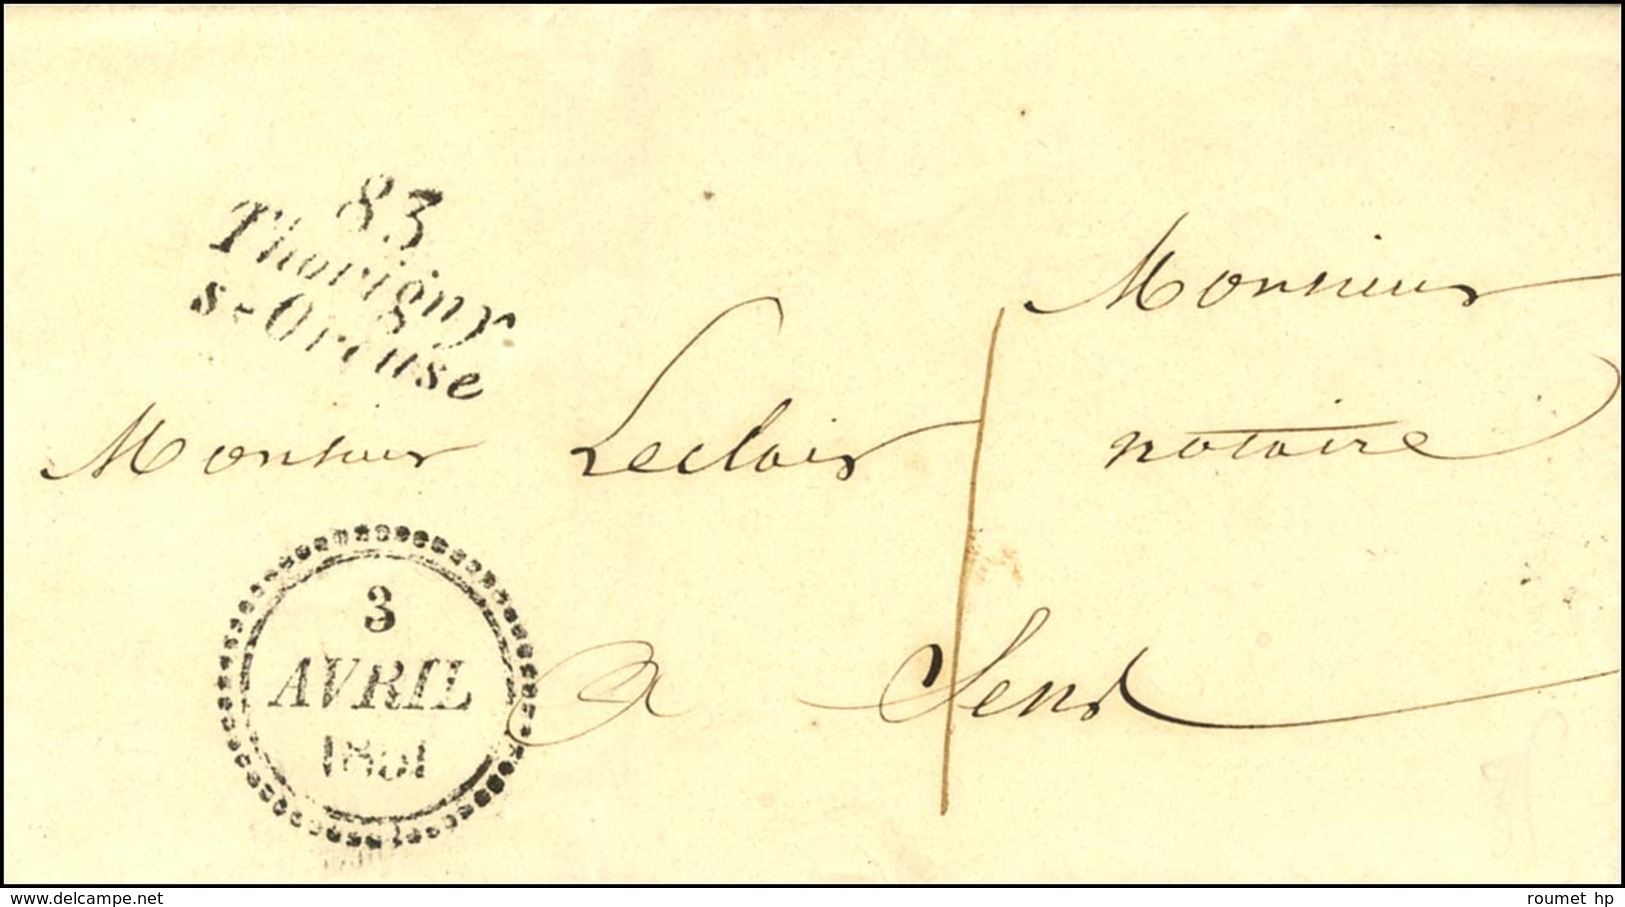 83
Thorigny
s-Oreuse
Monsieur
Monsieur Leclair notaire
3
AVRIL
1851
a Sens
delcampe.net
roumet hp